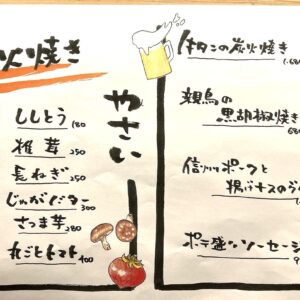 火焼き
やさい
ししとう 180
椎茸 250
長ねぎ 250
じゃがバター 300
さつま芋 280
丸ごとトマト 400
牛タンの炭火焼き
親鳥の
黒胡椒焼き
信州ポークと
揚げナスの
ポテ盛りソーセージ